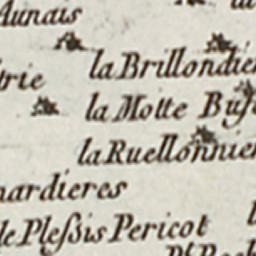 Aunais
la Brillondie
trie
la Motte Buſ
la Ruellonnier
nardieres
le Pleſsis Pericot